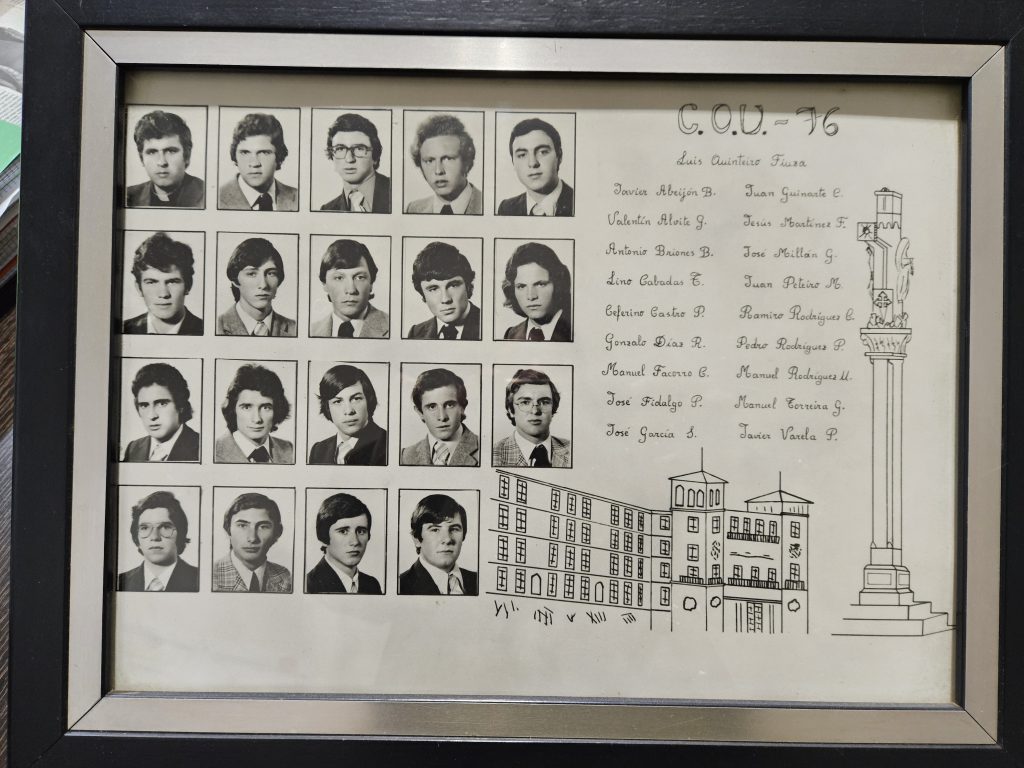 C.O.U.-76
Luis Quinteiro Fiuza
Javier Abeijón B.
Valentín Alvite G.
Antonio Briones B.
Lino Cabadas T.
Ceferino Castro P.
Gonzalo Díaz R.
Manuel Facorro C.
José Fidalgo P.
José García S.
Juan Guinarte C.
Jesús Martínez F.
José Millán G.
Juan Peteiro M.
Ramiro Rodríguez C.
Pedro Rodríguez P.
Manuel Rodríguez U.
Manuel Torreira G.
Javier Varela P.